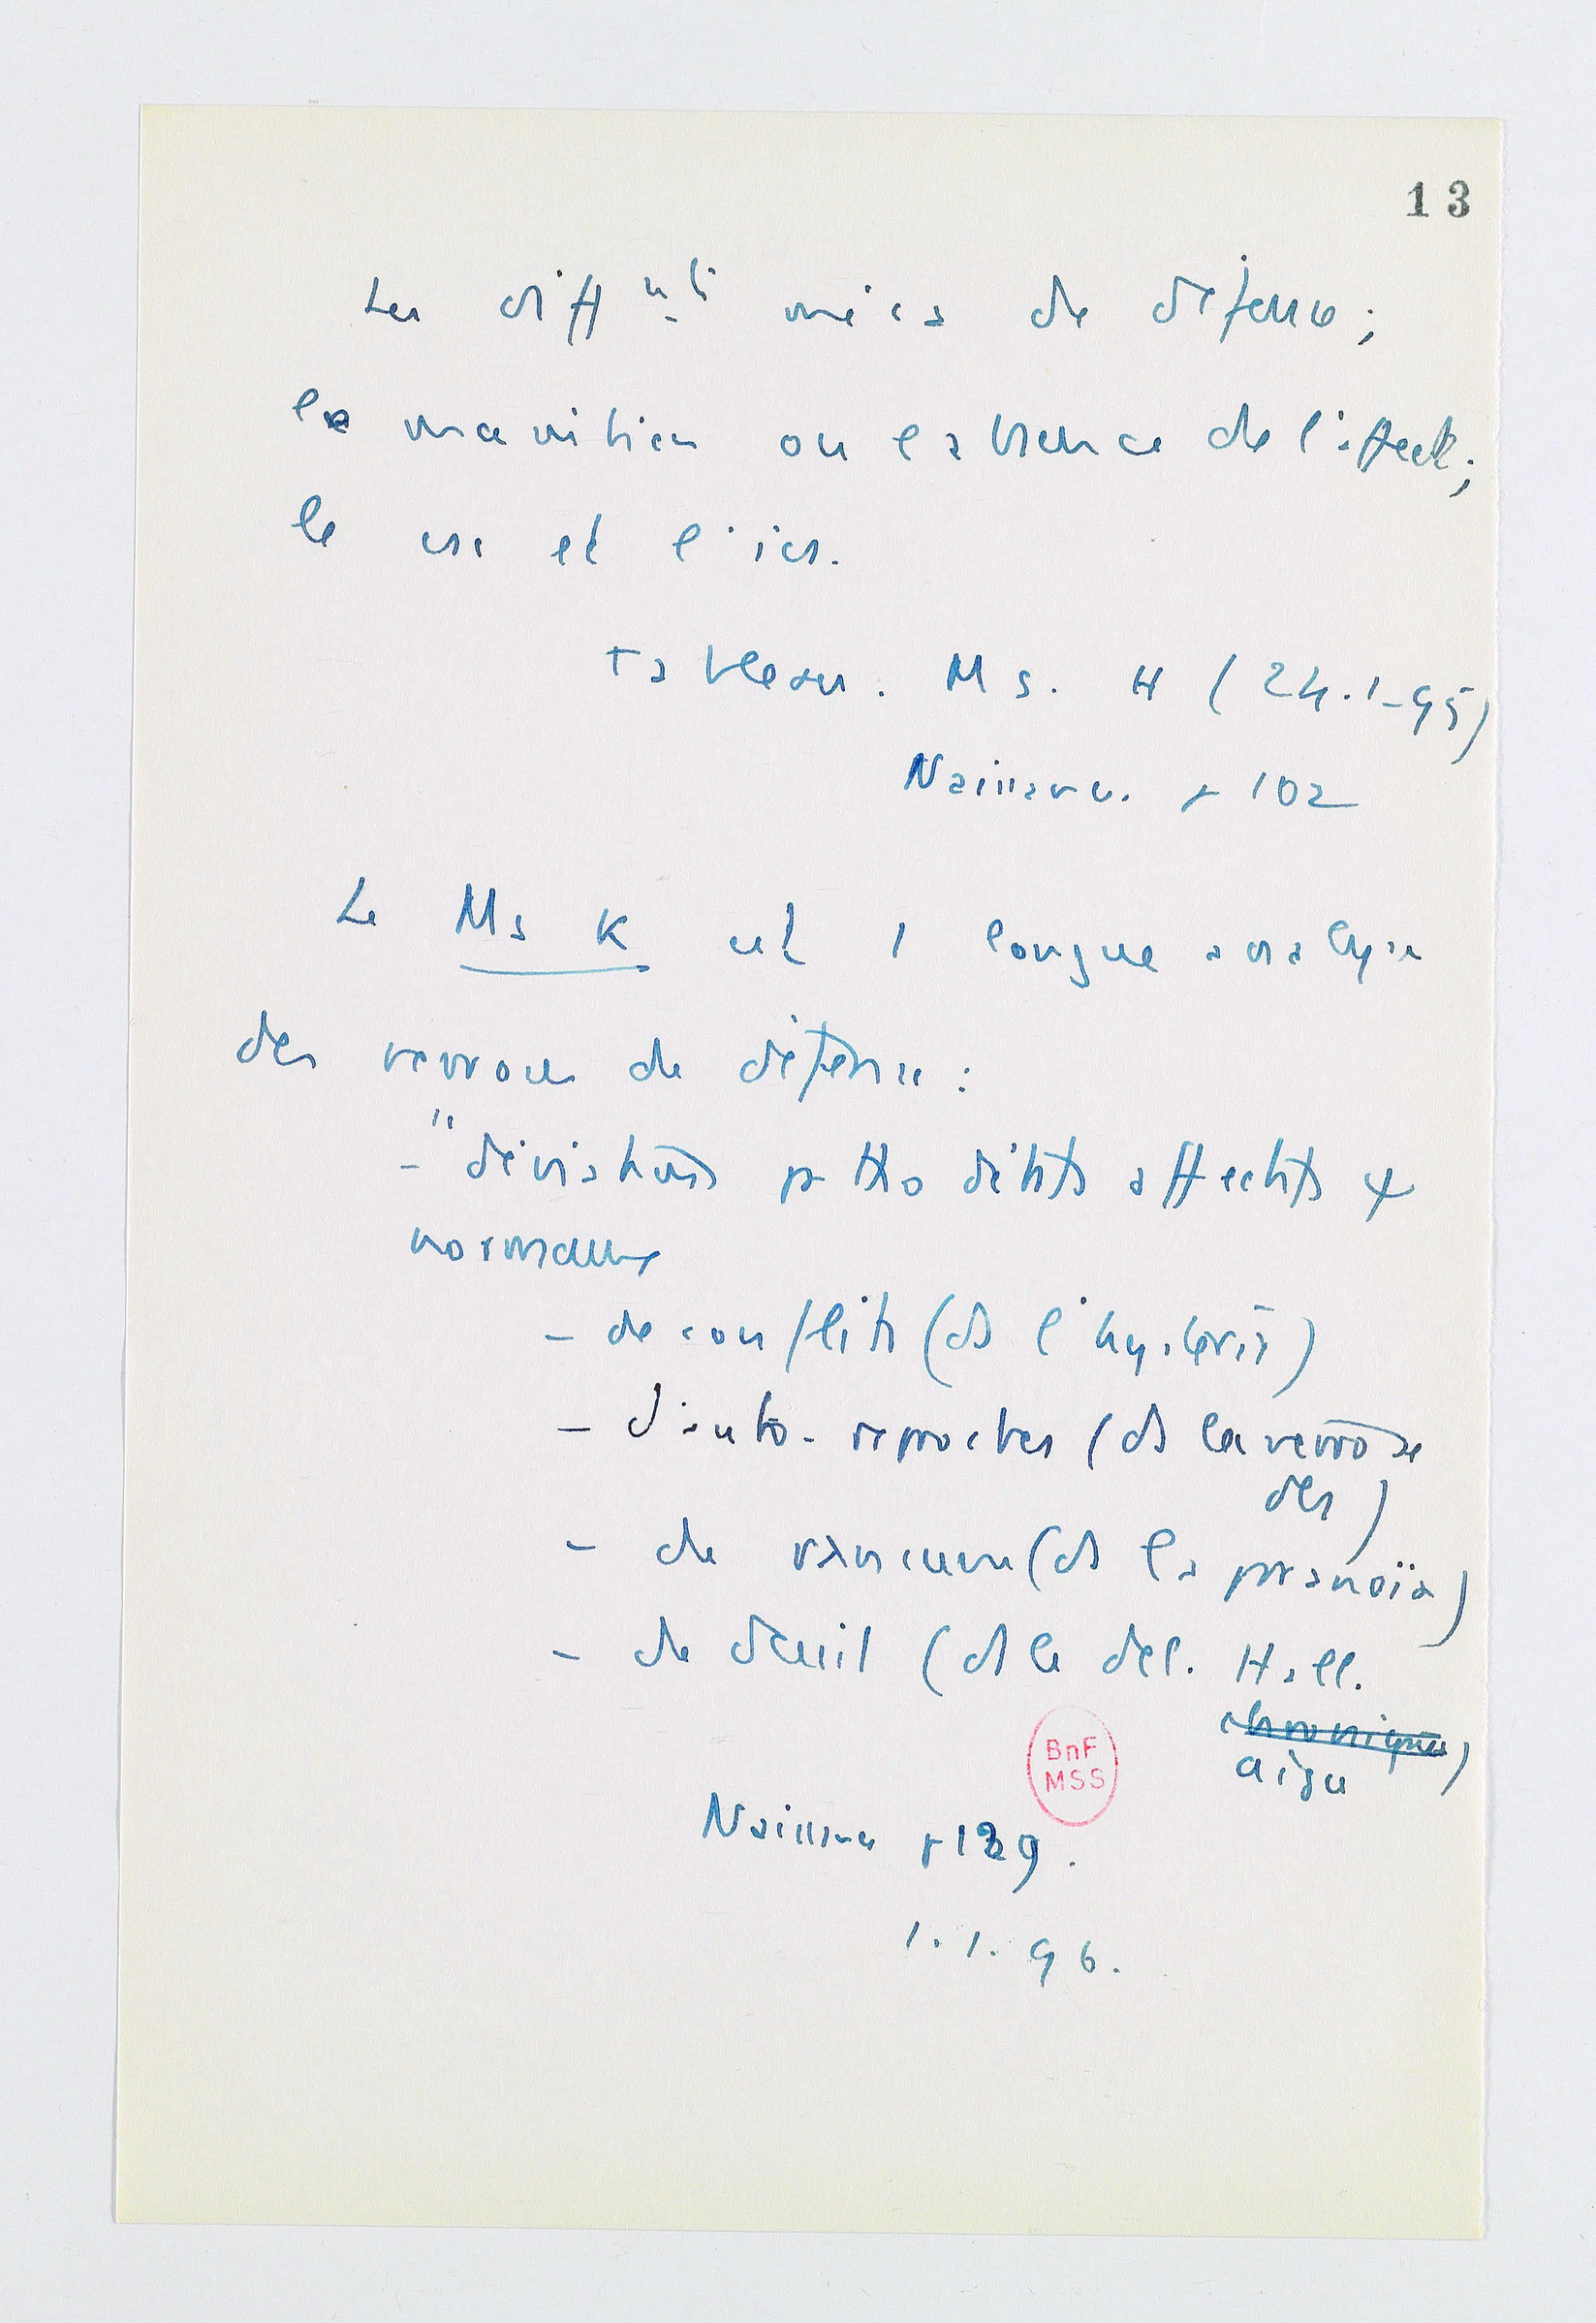 13
Les diff<sup>nts</sup> méca de défense ;
le maintien ou l'absence de l'affect ;
le cs et l'ics.
Tableau. Ms. H (24.1.95)
Naissance. p 102
Le Ms K est 1 longue analyse
des névroses de défense :
- "déviations patho d'états affectifs ψ
normaux
- de conflits (ds l'hystérie)
- d'auto-reproches (ds la névrose
obs)
- de rancune (ds la paranoïa)
- de deuil (ds le dél. Hall.
chronique)
aigu
BnF
MSS
Naissance p 129.
1.1.96.